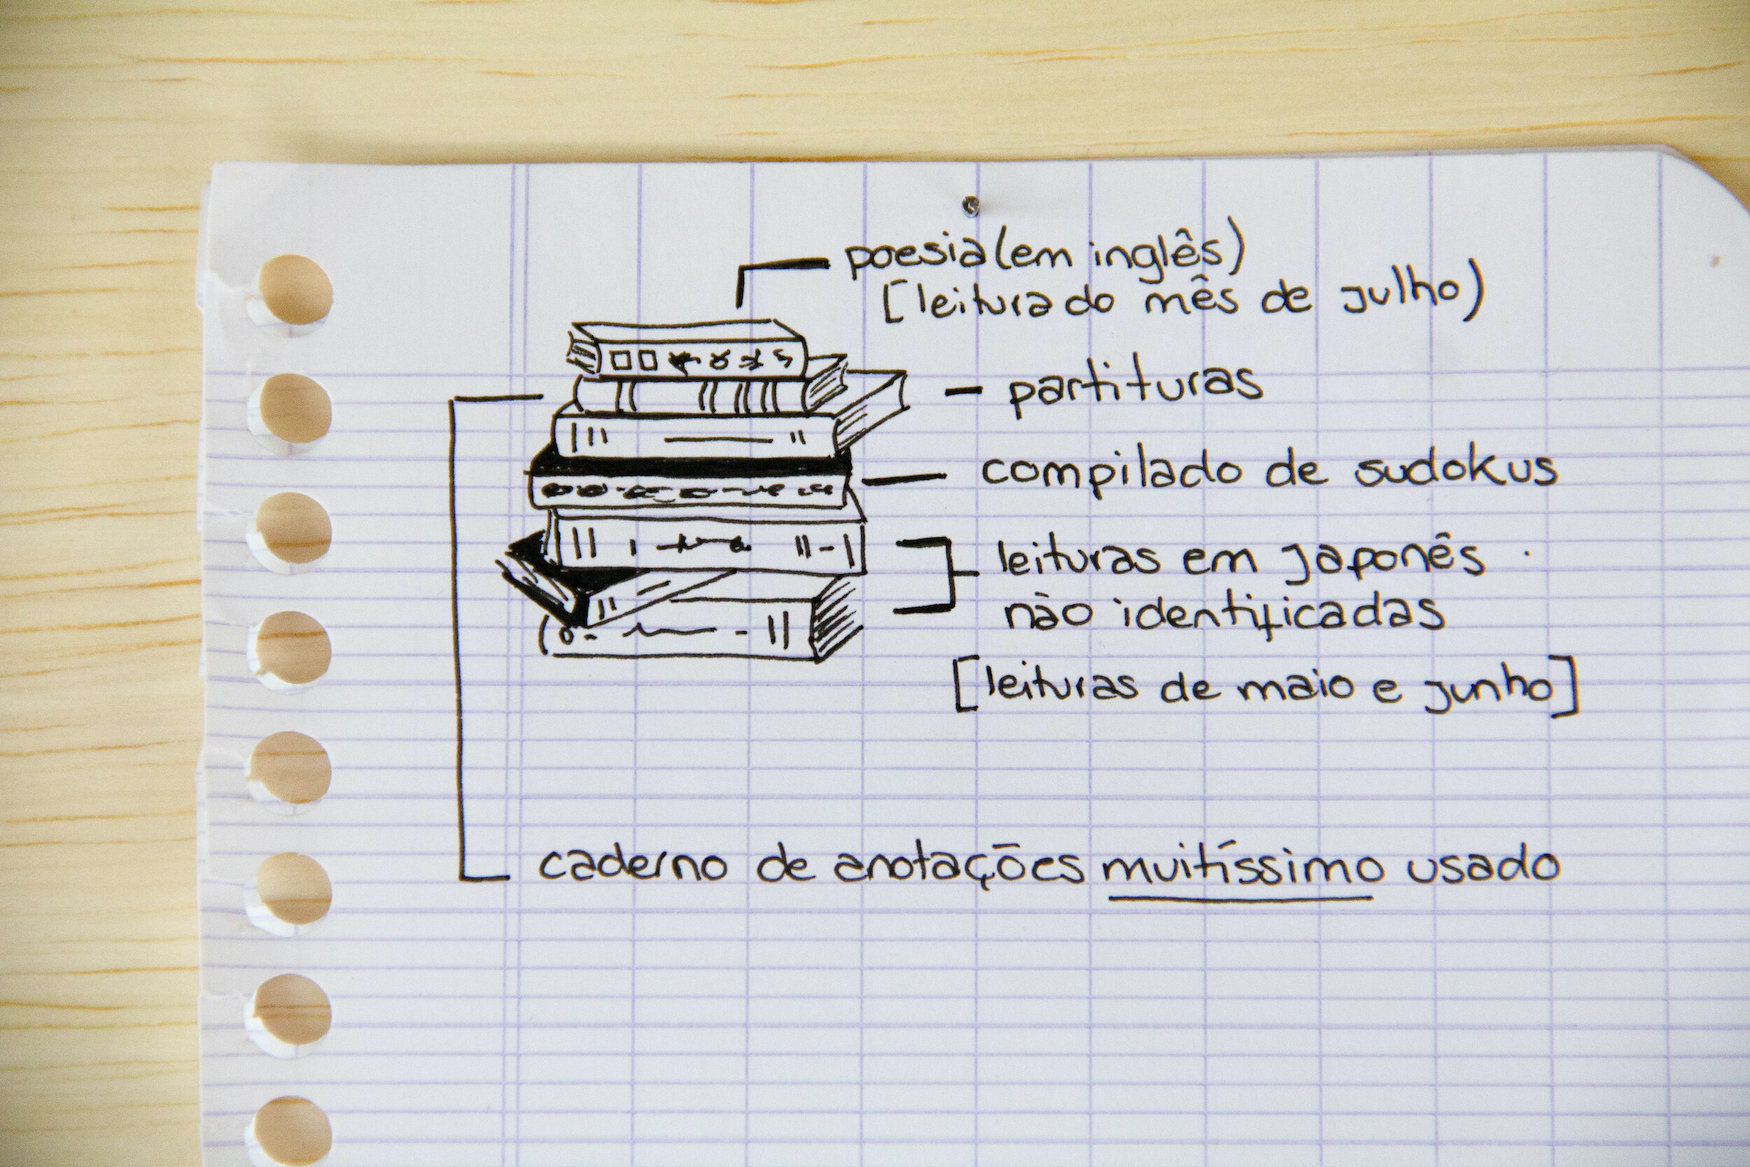 poesia (em inglês)
[leitura do mês de julho)
partituras
compilado de sudokus
leituras em japonês
não identificadas
[leituras de maio e junho]
caderno de anotações muitíssimo usado